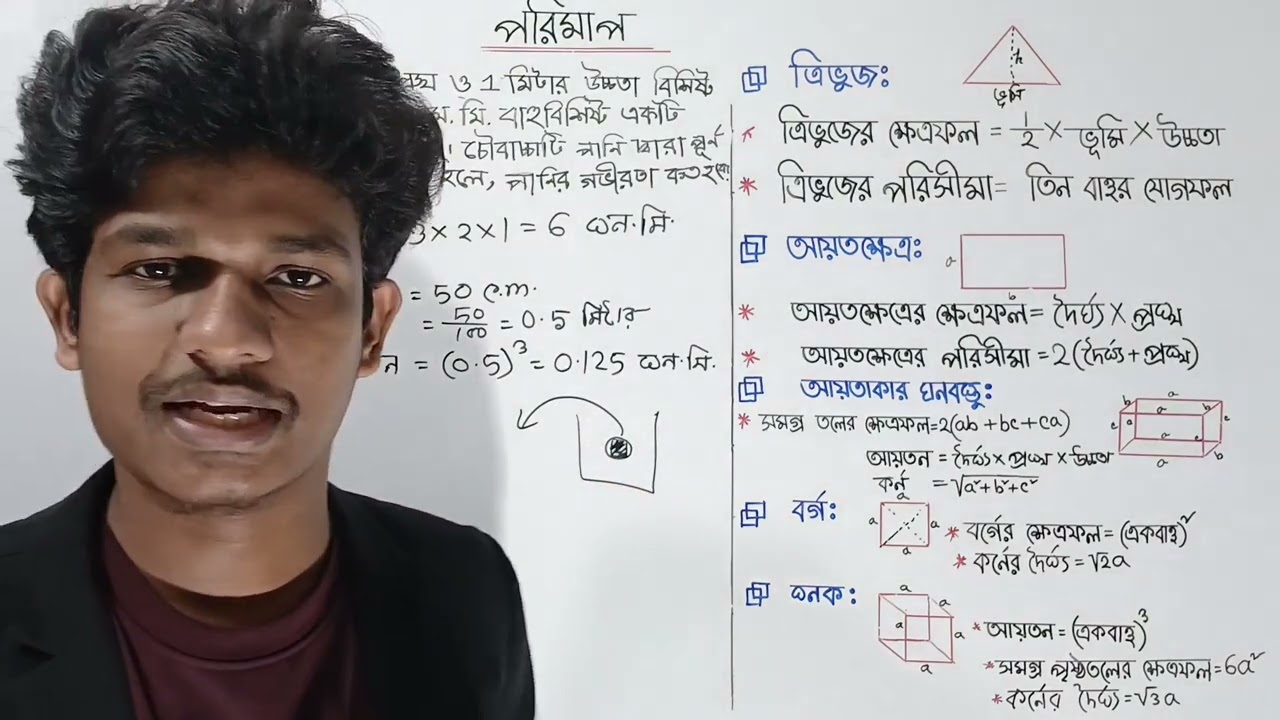 পরিমাপ
ও 1 মিটার উচ্চতা বিশিষ্ট
মি. বাহুবিশিষ্ট একটি
চৌবাচ্চাটি পানি দ্বারা পূর্ন
হলে, পানির গভীরতা কত হবে
3×2×1 = 6 ঘন.মি.
= 50 c.m.
= 50/100 = 0.5 মিটার
ন = (0.5)³ = 0.125 ঘন.মি.
ত্রিভুজঃ
h
ভূমি
* ত্রিভুজের ক্ষেত্রফল = 1/2 × ভূমি × উচ্চতা
* ত্রিভুজের পরিসীমা = তিন বাহুর যোগফল
আয়তক্ষেত্রঃ
a
b
* আয়তক্ষেত্রের ক্ষেত্রফল = দৈর্ঘ্য × প্রস্থ
* আয়তক্ষেত্রের পরিসীমা = 2(দৈর্ঘ্য + প্রস্থ)
আয়তাকার ঘনবস্তুঃ
* সমগ্র তলের ক্ষেত্রফল = 2(ab + bc + ca)
আয়তন = দৈর্ঘ্য × প্রস্থ × উচ্চতা
কর্ন = √a²+b²+c²
a
b a b
c a c
a c
a b
বর্গঃ
a
a a
a
* বর্গের ক্ষেত্রফল = (একবাহু)²
* কর্নের দৈর্ঘ্য = √2a
ঘনকঃ
a
a
a a
a
* আয়তন = (একবাহু)³
* সমগ্র পৃষ্ঠতলের ক্ষেত্রফল = 6a²
* কর্নের দৈর্ঘ্য = √3a